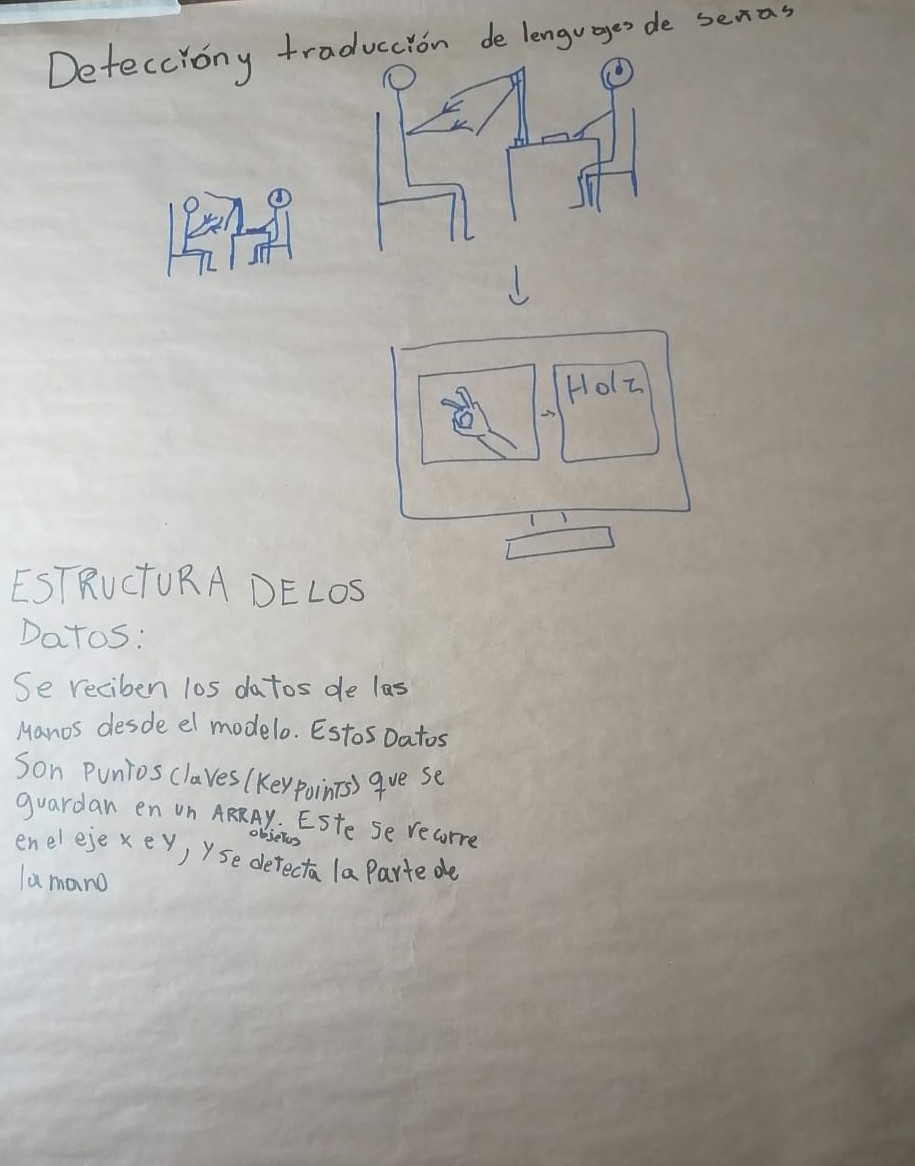 Detección y traducción de lenguajes de señas
Hola
ESTRUCTURA DE LOS
DATOS:
Se reciben los datos de las
Manos desde el modelo. Estos Datos
Son Puntos claves (Keypoints) que se
guardan en un ARRAY. Este se recorre
en el eje x e y, y se detecta la Parte de
objetos
la mano